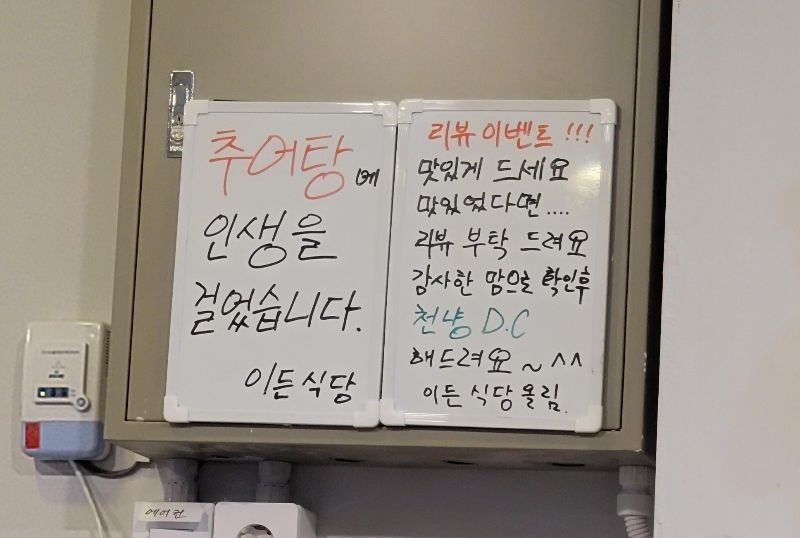 추어탕에
인생을
걸었습니다.
이든 식당
리뷰 이벤트 !!!
맛있게 드세요
맛있었다면....
리뷰 부탁 드려요
감사한 맘으로 확인후
천냥 D.C
해드려요 ~ ^^
이든 식당 올림.
에어컨